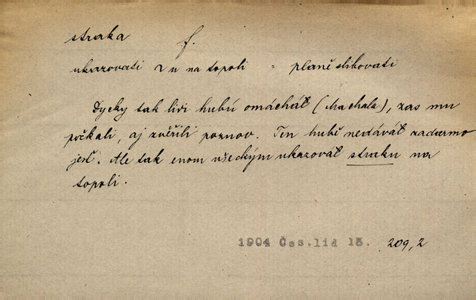 straka f.
ukazovati 2 u na topoli = planě slibovati
Dycky tak lidi hubú omáchát (Machala), zas mu
počkali, aj zvěřili poznov. Ten hubě nedávát zadarmo
jesť. Ale tak enom všeckým ukazovát straku na
topoli.
1904 Čes. lid 13. 209,2